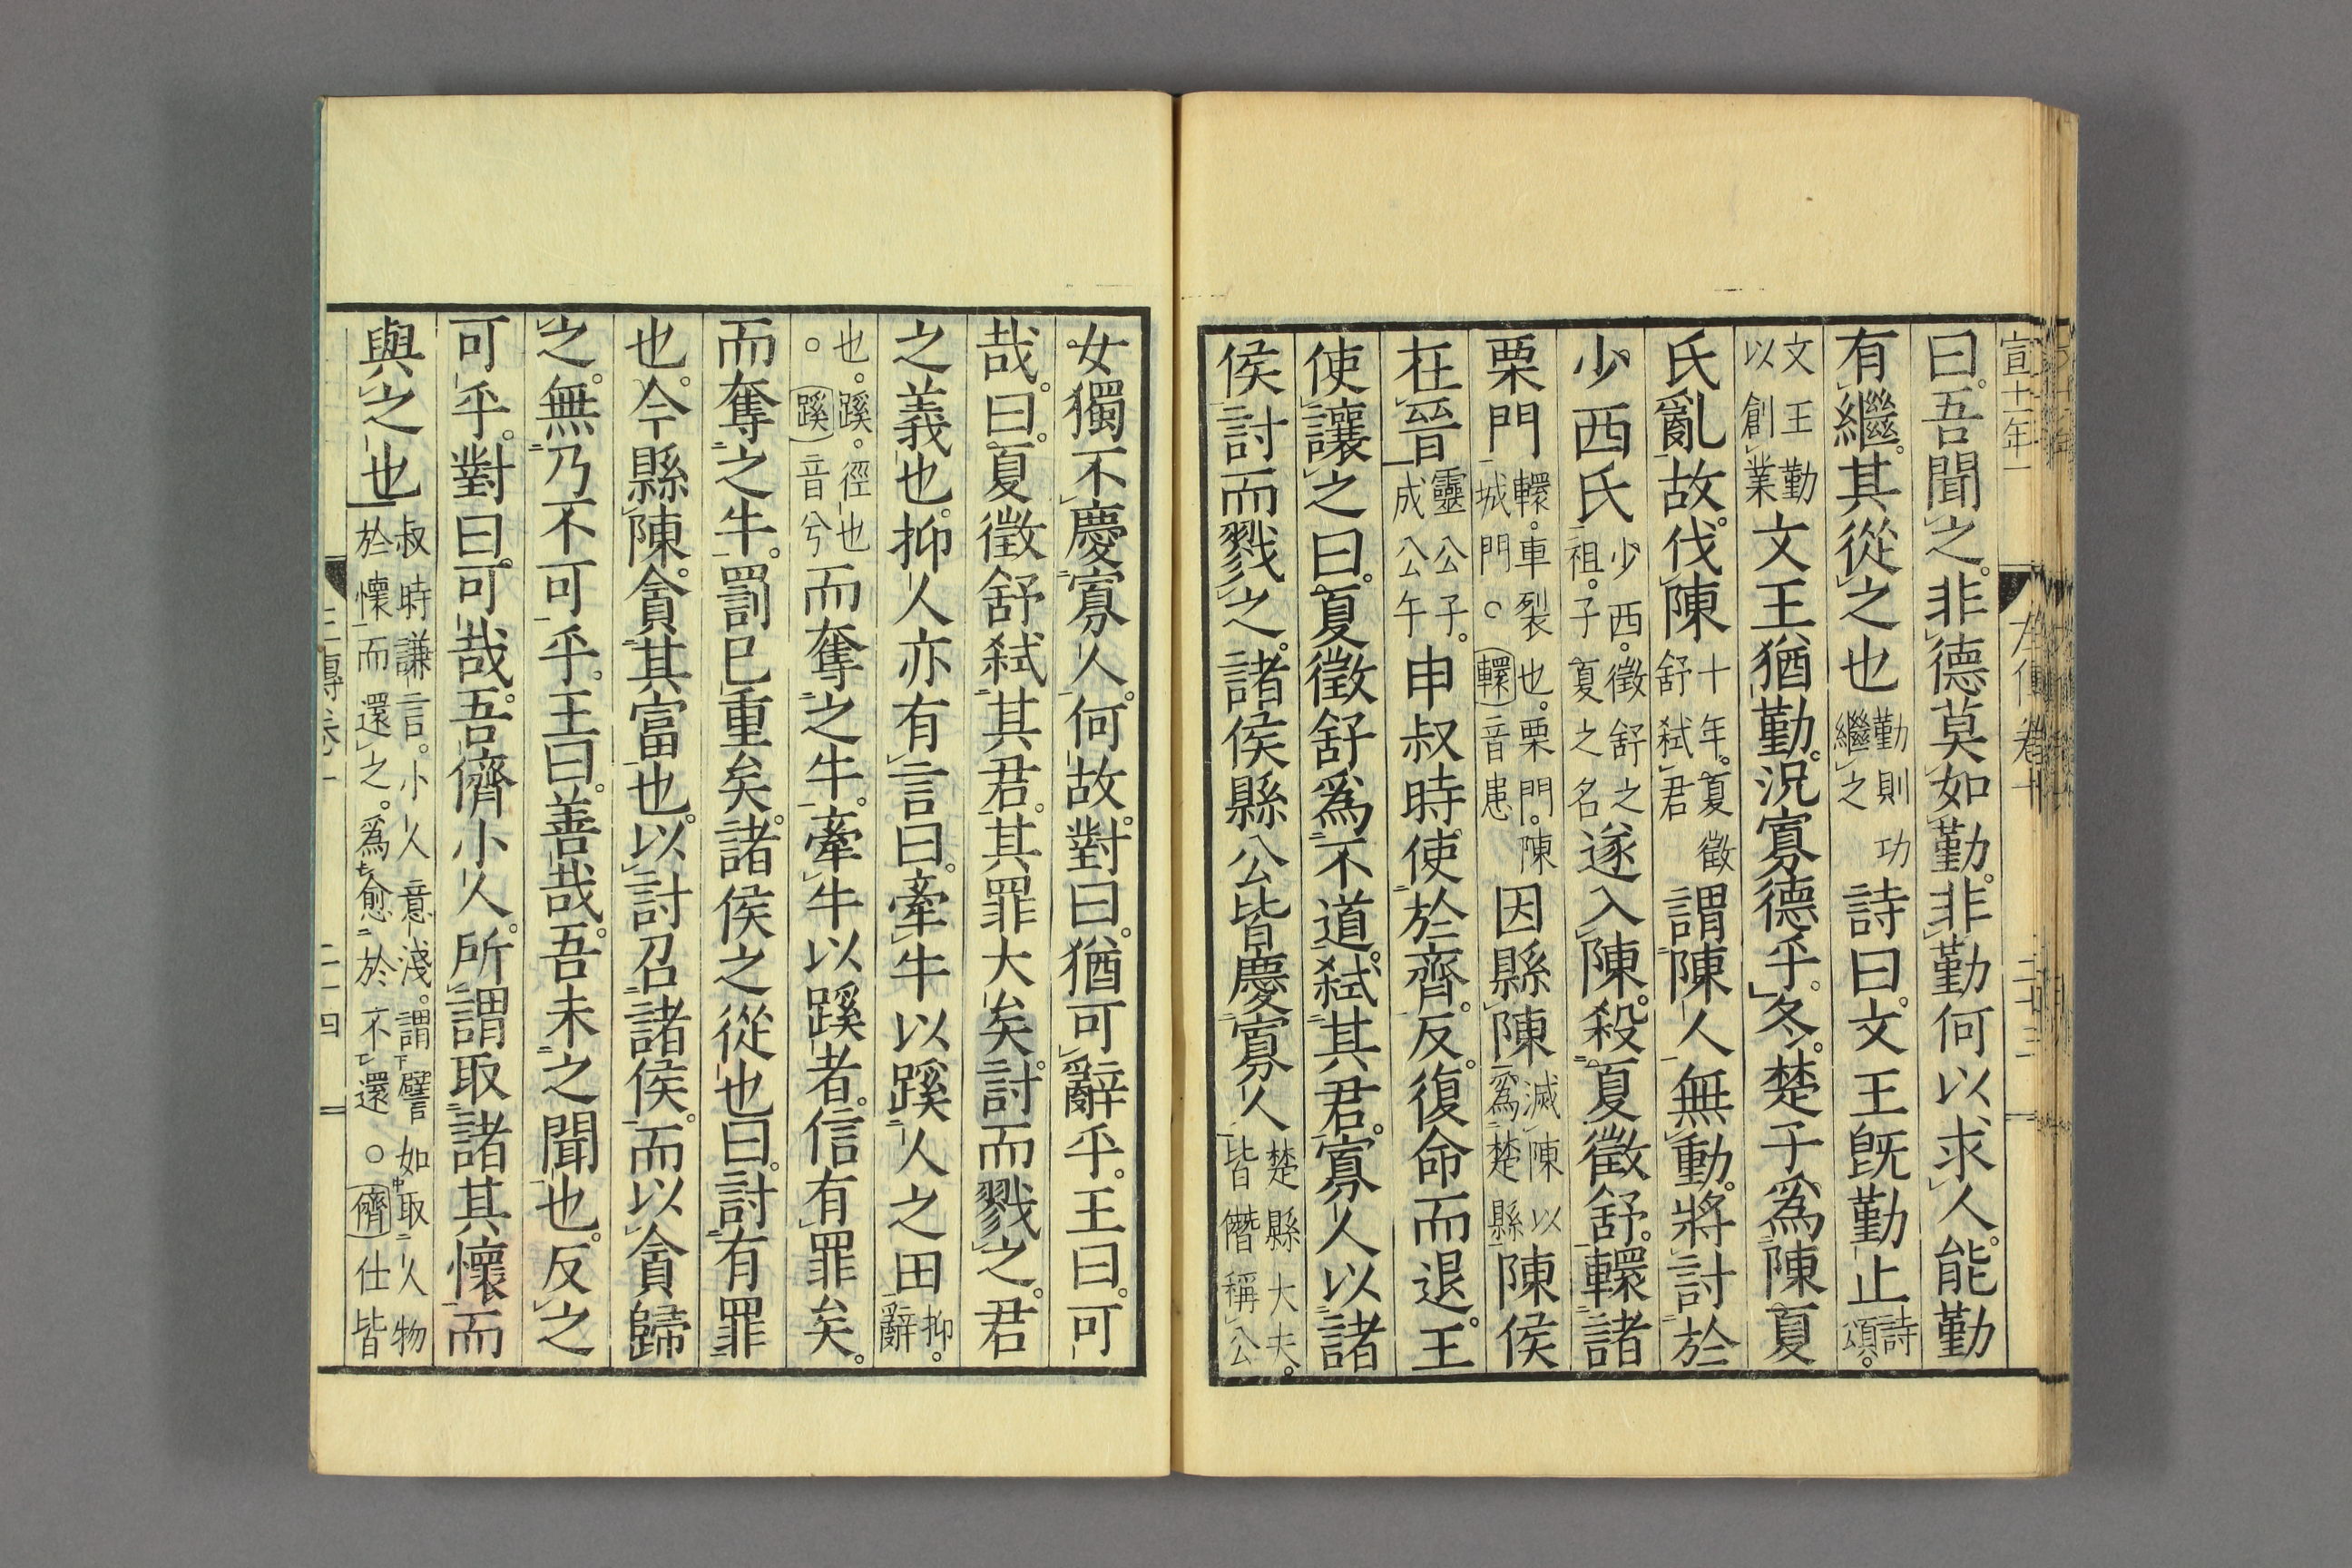 宣十一年
左傳卷十
二十三
曰。吾聞之。非德莫如勤。非勤何以求人。能勤
有繼。其從之也 勤則功 繼之 詩曰。文王既勤止 詩 頌。
文王勤 以創業 文王猶勤。況寡德乎。冬。楚子爲陳夏
氏亂故。伐陳 十年。夏徵 舒弑君 謂陳人無動。將討於
少西氏 少西。徵舒之 祖。子夏之名 遂入陳。殺夏徵舒。轘諸
栗門 轘。車裂也。栗門。陳 城門。○轘音患 因縣陳 滅陳以 爲楚縣 陳侯
在晉 靈公子。 成公午 申叔時使於齊。反。復命而退。王
使讓之曰。夏徵舒爲不道。弑其君。寡人以諸
侯討而戮之。諸侯縣公皆慶寡人 楚縣大夫。 皆僭稱公
女獨不慶寡人。何故。對曰。猶可辭乎。王曰。可
哉。曰。夏徵舒弑其君。其罪大矣。討而戮之。君
之義也。抑人亦有言曰。牽牛以蹊人之田 抑。 辭
也。蹊。徑也 。蹊音兮 而奪之牛。牽牛以蹊者。信有罪矣。
而奪之牛。罰已重矣。諸侯之從也。曰。討有罪
也。今縣陳。貪其富也。以討召諸侯。而以貪歸
之。無乃不可乎。王曰。善哉。吾未之聞也。反之
可乎。對曰。可哉。吾儕小人。所謂取諸其懷而
與之也 叔時謙言。小人意淺。謂譬如取人物 於懷而還之。爲愈於不還。○儕仕皆